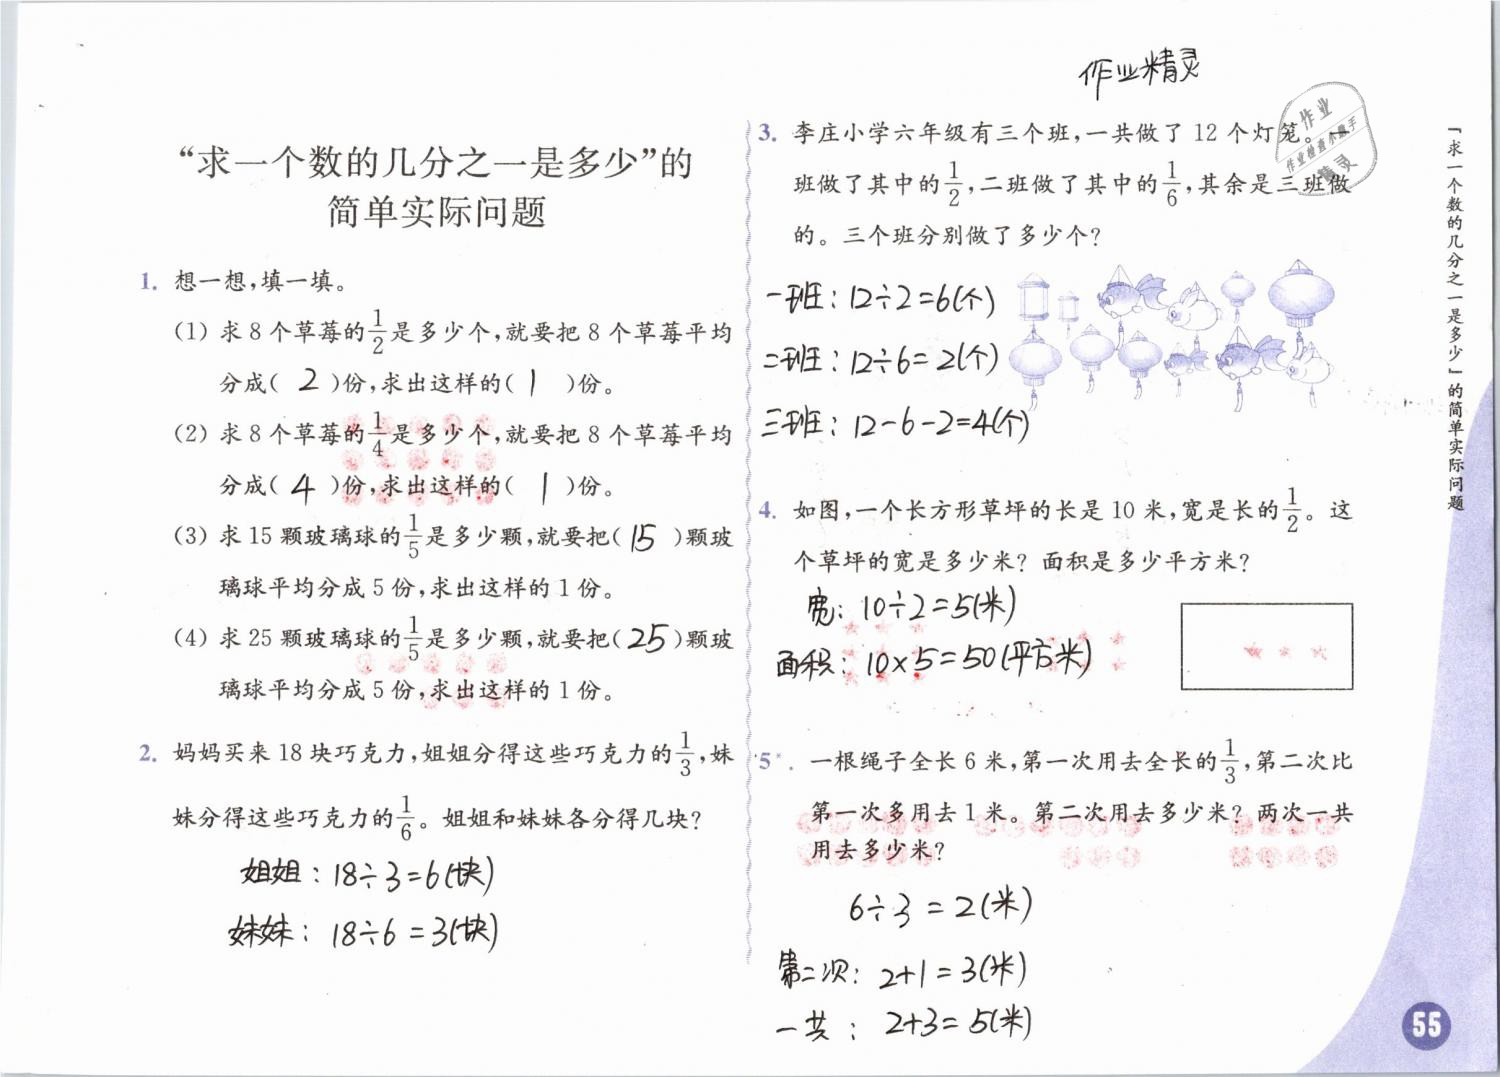 作业精灵
作业
作业检查小助手
精灵
“求一个数的几分之一是多少”的
简单实际问题
1. 想一想,填一填。
(1) 求 8 个草莓的1/2是多少个,就要把 8 个草莓平均
分成( 2 )份,求出这样的( 1 )份。
(2) 求 8 个草莓的1/4是多少个,就要把 8 个草莓平均
分成( 4 )份,求出这样的( 1 )份。
(3) 求 15 颗玻璃球的1/5是多少颗,就要把( 15 )颗玻
璃球平均分成 5 份,求出这样的 1 份。
(4) 求 25 颗玻璃球的1/5是多少颗,就要把( 25 )颗玻
璃球平均分成 5 份,求出这样的 1 份。
2. 妈妈买来 18 块巧克力,姐姐分得这些巧克力的1/3,妹
妹分得这些巧克力的1/6。姐姐和妹妹各分得几块?
姐姐:18÷3=6(块)
妹妹:18÷6=3(块)
3. 李庄小学六年级有三个班,一共做了 12 个灯笼。
班做了其中的1/2,二班做了其中的1/6,其余是三班做
的。三个班分别做了多少个?
一班:12÷2=6(个)
二班:12÷6=2(个)
三班:12-6-2=4(个)
4. 如图,一个长方形草坪的长是 10 米,宽是长的1/2。这
个草坪的宽是多少米? 面积是多少平方米?
宽:10÷2=5(米)
面积:10×5=50(平方米)
5*. 一根绳子全长 6 米,第一次用去全长的1/3,第二次比
第一次多用去 1 米。第二次用去多少米? 两次一共
用去多少米?
6÷3=2(米)
第二次:2+1=3(米)
一共:2+3=5(米)
「求一个数的几分之一是多少」的简单实际问题
55